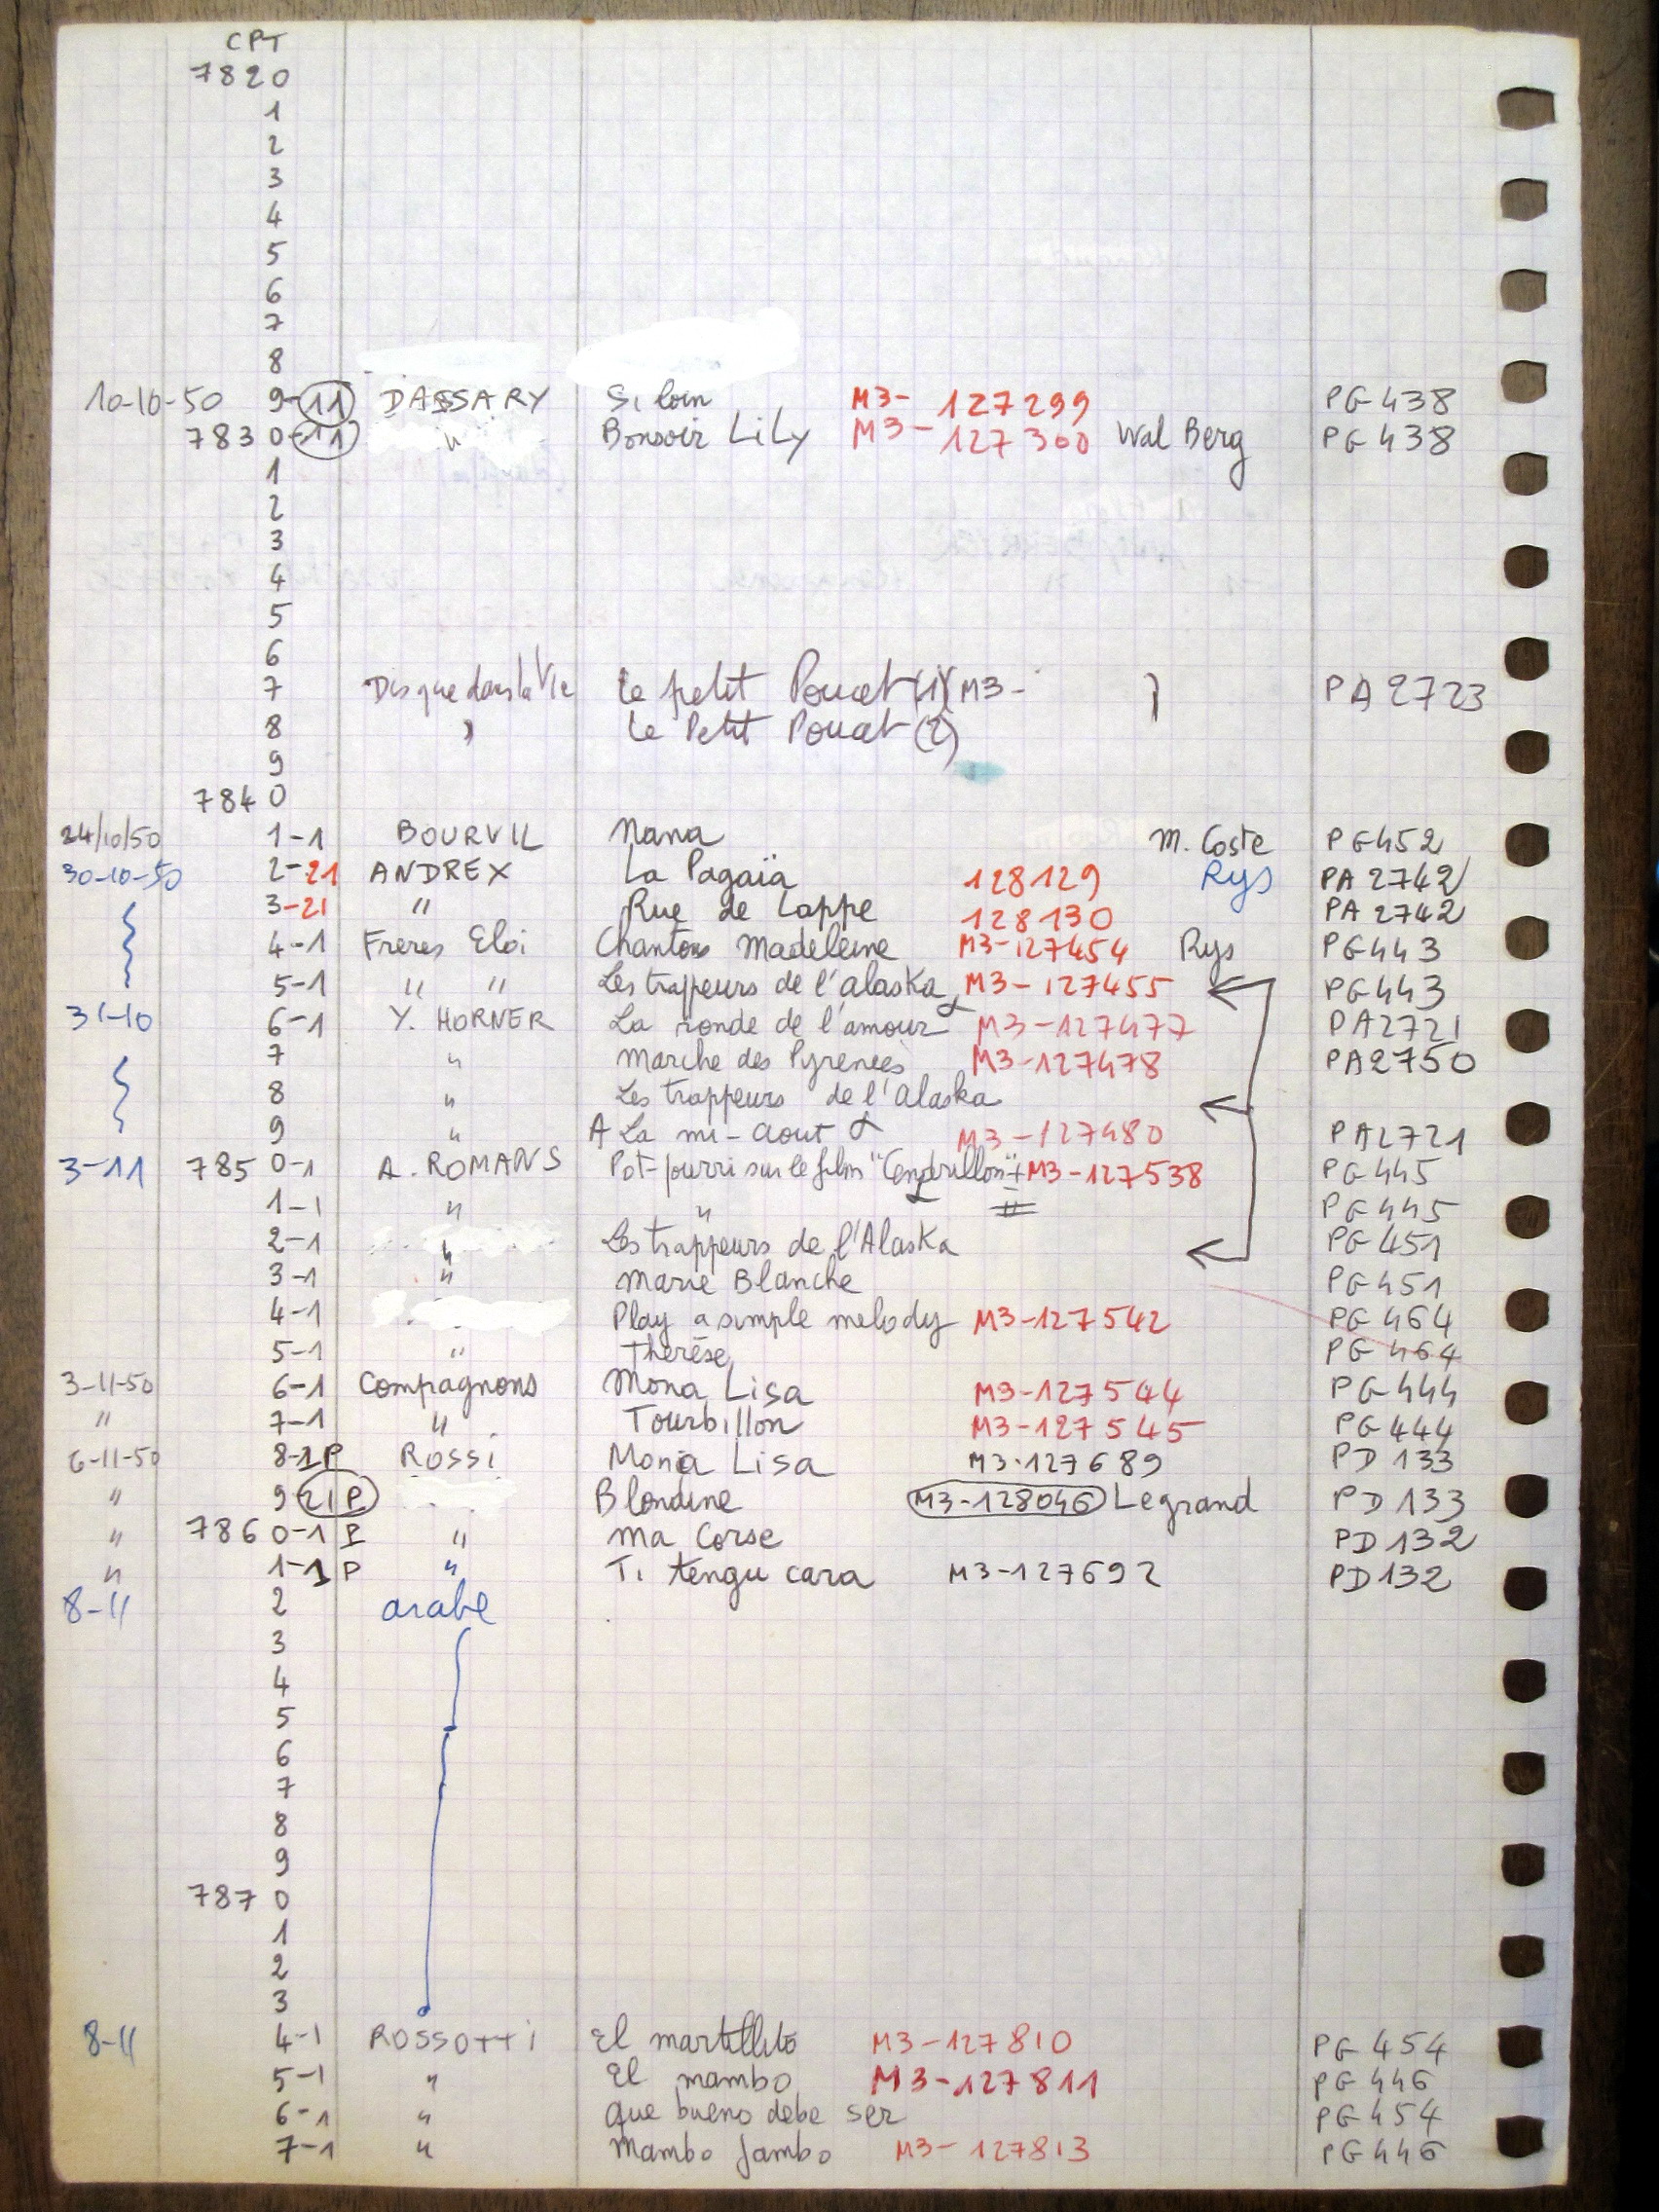 CPT
7820
1
2
3
4
5
6
7
8
10-10-50 9-11 DASSARY Si loin M3- 127299 PG 438
7830-11 " Bonsoir LiLy M3- 127300 Wal Berg PG 438
1
2
3
4
5
6
7 Disque dans la Vie Le petit Poucet (1) M3- PA 2723
8 " Le Petit Poucet (2)
9
7840
24/10/50 1-1 BOURVIL Nana M. Coste PG 452
30-10-50 2-21 ANDREX La Pagaïa 128129 Rys PA 2742
3-21 " Rue de Lappe 128130 PA 2742
4-1 Freres Eloi Chantons Madeleine M3-127454 Rys PG 443
5-1 " " Les trappeurs de l'alaska M3-127455 PG 443
31-10 6-1 Y. HORNER La ronde de l'amour M3-127477 PA2721
7 " Marche des Pyrenées M3-127478 PA2750
8 " Les trappeurs de l'Alaska
9 " A La mi-aout M3-127480 PA2721
3-11 7850-1 A. ROMANS Pot-pourri sur le film "Cendrillon" M3-127538 PG 445
1-1 " " PG 445
2-1 " Les trappeurs de l'Alaska PG 451
3-1 " Marie Blanche PG 451
4-1 Play a simple melody M3-127542 PG 464
5-1 " Therèse PG 464
3-11-50 6-1 Compagnons Mona Lisa M3-127544 PG 444
" 7-1 " Tourbillon M3-127545 PG 444
6-11-50 8-1P Rossi Mona Lisa M3-127689 PD 133
" 9 21 P Blondine M3-128046 Legrand PD 133
" 7860-1 P " Ma Corse PD 132
" 1-1 P " Ti tengu cara M3-127692 PD 132
8-11 2 arabe
3
4
5
6
7
8
9
7870
1
2
3
8-11 4-1 ROSSOTTI El martillito M3-127810 PG 454
5-1 " El mambo M3-127811 PG 446
6-1 " Que bueno debe ser PG 454
7-1 " Mambo Jambo M3-127813 PG 446